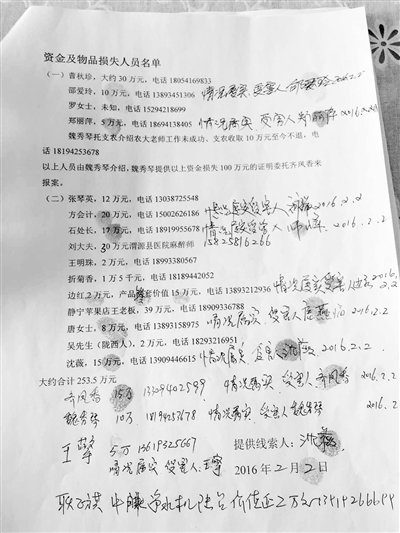 资金及物品损失人员名单
(一)曾秋珍,大约 30 万元,电话 18054169833
邵爱玲,10 万元,电话 13893451306 情况属实,受害人 2016.2.2
罗女士,未知,电话 15294218699
郑丽萍,5 万元,电话 18694138405 情况属实,受害人 2016.2.2
魏秀琴托支农介绍农大老师工作未成功。支农收取 10 万元至今不退,电
话 18194253678
以上人员由魏秀琴介绍,魏秀琴提供以上资金损失 100 万的证明委托齐风香来
报案。
(二)张琴英,12 万元,电话 13038725548
方会计,20 万元,电话 15002626186 情况属实受害人 2016.2.2
石处长,17 万元,电话 18919955678 情况属实受害人 2016.2.2
刘大夫,30 万元渭源县医院麻醉师 15825816266
王明珠,2 万元,电话 18993380567
折菊香,1 万 5 千元,电话 18189442052
边红 2 万元,产品套价值 15 万元,电话 13893212936 情况属实受害人 2016.2.2
静宁苹果店王老板,39 万元,电话 18909336788
唐女士,8 万元,电话 13893158975 情况属实,受害人 2016.2.2
吴先生(陇西人),2 万元,电话 18293216951
沈薇,15 万元,电话 13909446615 情况属实,受害人沈薇 2016.2.2
大约合计 253.5 万元
齐风香 15万 13029402589 情况属实 受害人 齐风香 2016.2.2
魏秀琴 10万 18194253678 情况属实,受害人魏秀琴 2016.2.2
王馨 5万 13619325667 提供线索人:沈薇
情况属实 受害人:王馨 2016 年 2 月 2 日
净水机 价值 2万元